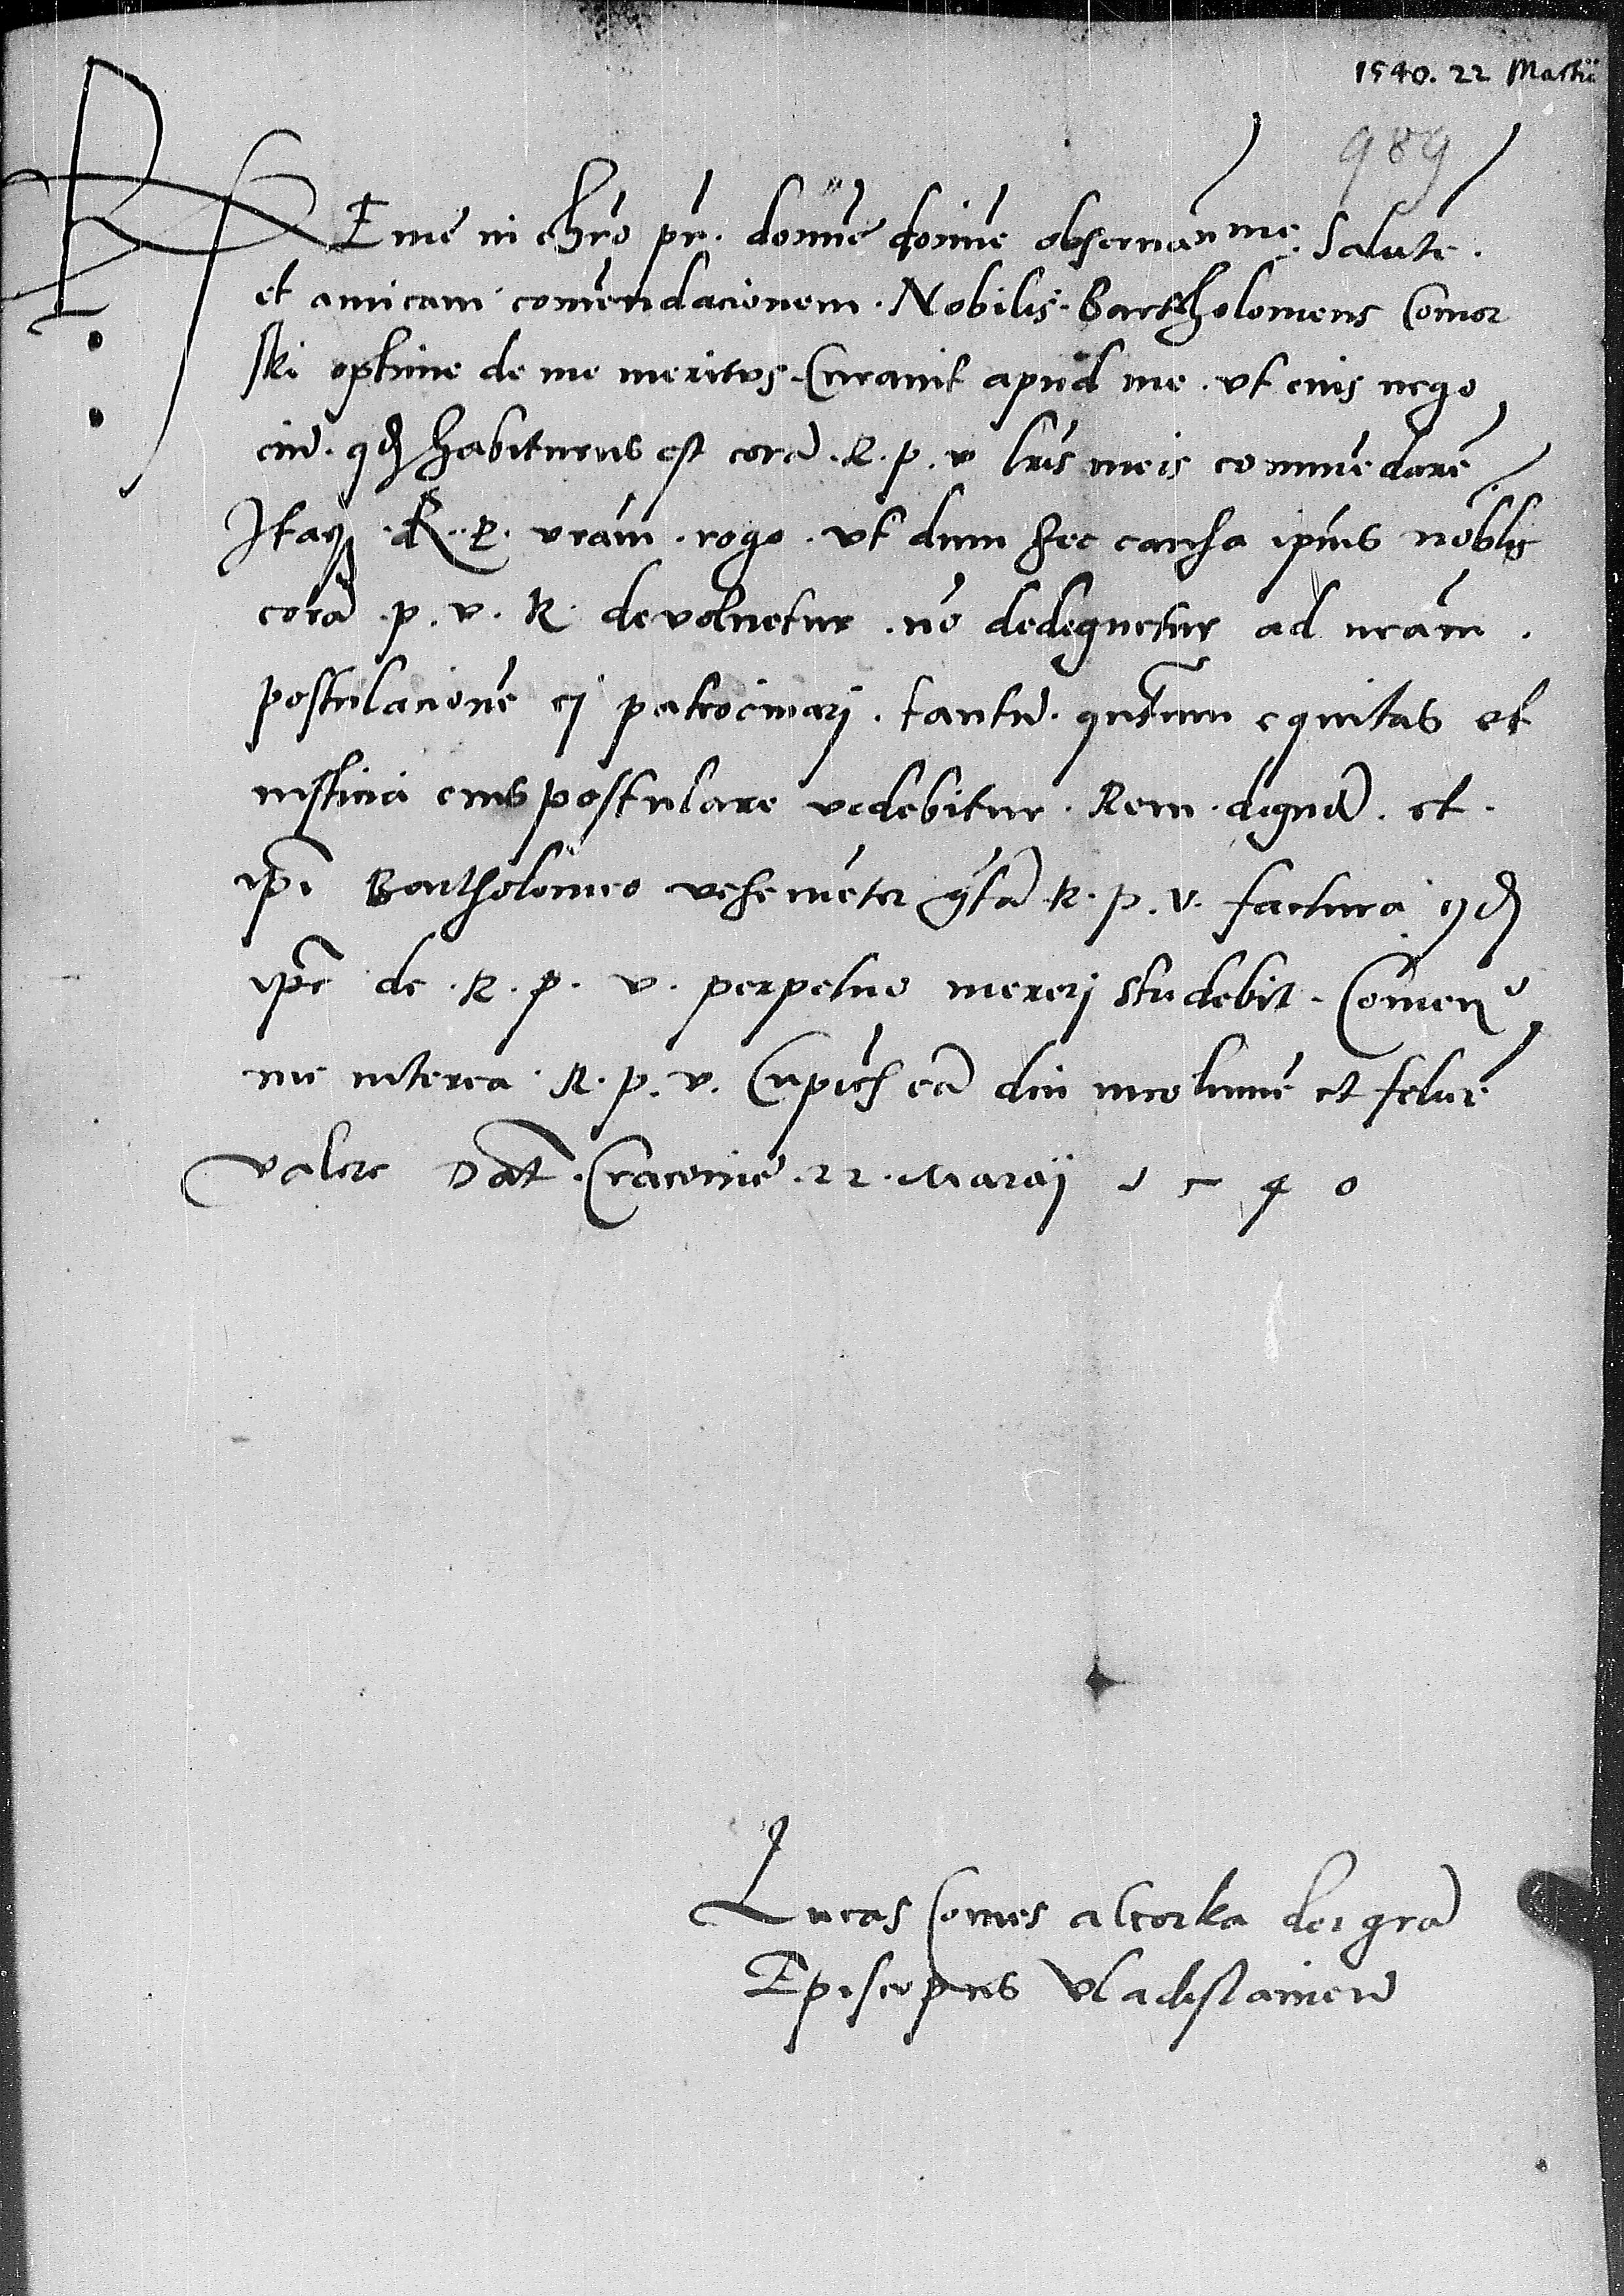 1540. 22 Martii
989
REme in chro pr. domine domine obseruanme. Salute.
et amicam comendacionem. Nobilis. Bartholomeus Comor
ski optime de me meritus. Curauit apud me. vt eius nego
ciu. qd habiturus est cora. R. p. v lris meis commedare
Itaq. R. P. vram. rogo. vt dum hec causa ipius noblis
cora. p. v. R. deuoluetur. no dedignetur ad meam.
postulacione ej patrocinarj. tantu. quatum equitas et
iusticia eius postulare videbitur. Rem. digna. et.
ipi Bartholomeo vehemeter grta R. p. v. factura qd
ipe de. R. p. v. perpetuo mererj studebit. Comen
me interea. R. p. v. Cupies ea diu incolume et felice
valere Dat. Cracouie. 22. Marcij 1540
Lucas Comes a Gorka dei gra
Episcopus Vladislauien